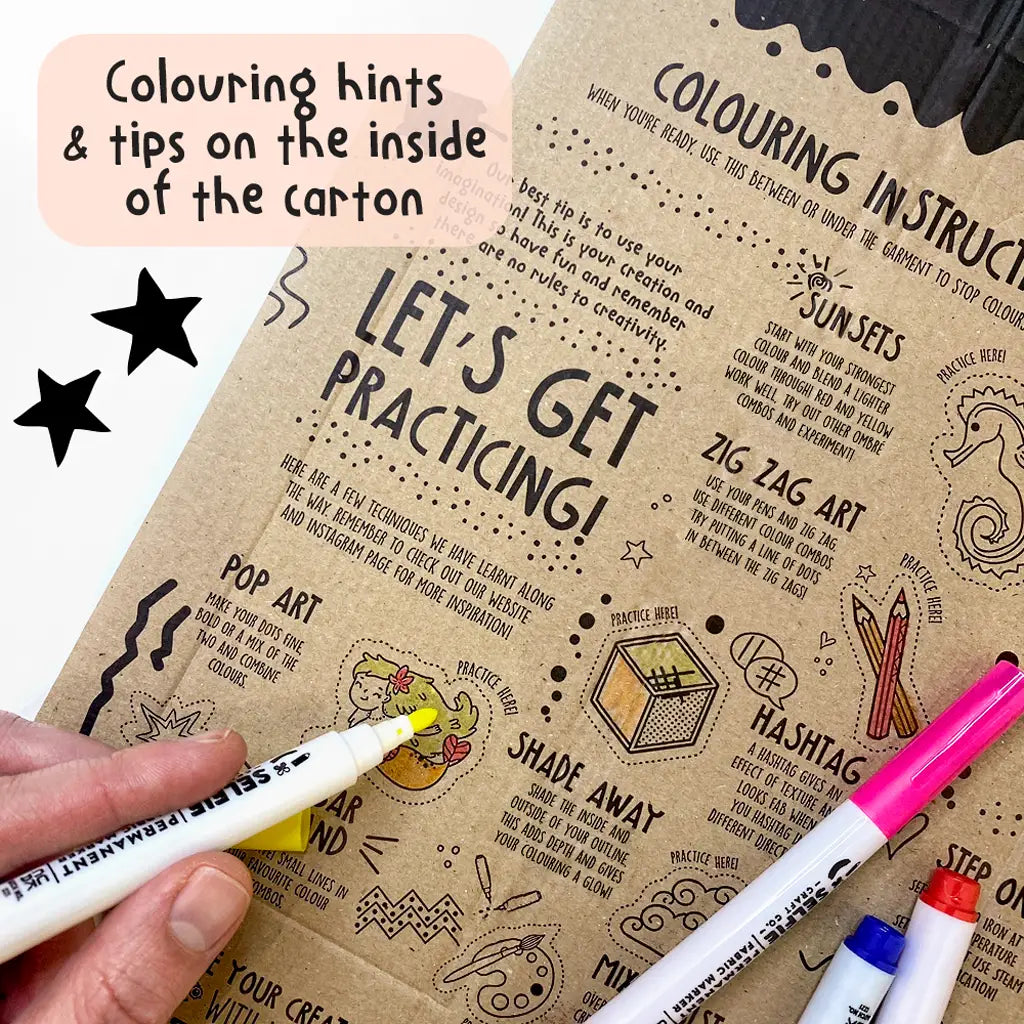 Colouring hints
& tips on the inside
of the carton
COLOURING
WHEN YOU'RE READY, USE THIS BETWEEN OR UNDER THE GARMENT TO STOP
Our best tip is to use your
imagination! This is your creation and
design so have fun and remember
there are no rules to creativity.
LET'S GET
PRACTICING!
HERE ARE A FEW TECHNIQUES WE HAVE LEARNT ALONG
THE WAY. REMEMBER TO CHECK OUT OUR WEBSITE
AND INSTAGRAM PAGE FOR MORE INSPIRATION!
SUNSETS
START WITH YOUR STRONGEST
COLOUR AND BLEND A LIGHTER
COLOUR THROUGH! RED AND YELLOW
WORK WELL. TRY OUT OTHER OMBRE
COMBOS AND EXPERIMENT!
PRACTICE HERE!
ZIG ZAG ART
USE YOUR PENS AND ZIG ZAG,
USE DIFFERENT COLOUR COMBOS.
TRY PUTTING A LINE OF DOTS
IN BETWEEN THE ZIG ZAGS!
PRACTICE HERE!
POP ART
MAKE YOUR DOTS FINE,
BOLD OR A MIX OF THE
TWO AND COMBINE
COLOURS.
PRACTICE HERE!
PRACTICE HERE!
#
SHADE AWAY
SHADE THE INSIDE AND
OUTSIDE OF YOUR OUTLINE.
THIS ADDS DEPTH AND GIVES
YOUR COLOURING A GLOW!
HASHTAG
A HASHTAG GIVES AN
EFFECT OF TEXTURE
LOOKS FAB WHEN
YOU HASHTAG
DIFFERENT
SMALL LINES IN
FAVOURITE COLOUR
COMBOS.
PRACTICE HERE!
STEP
IRON AT
USE STEAM
YOUR
WITH
SELFIE
PERMANENT
SELFIE
CRAFT CO.
FABRIC MARKER